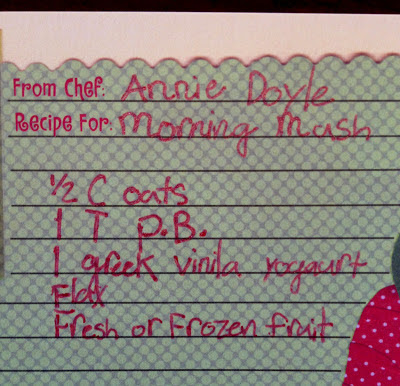 From Chef: Annie Doyle
Recipe For: Morning Mash
1/2 C oats
1 T P.B.
1 greek vinila yogaurt
Flax
Fresh or Frozen fruit